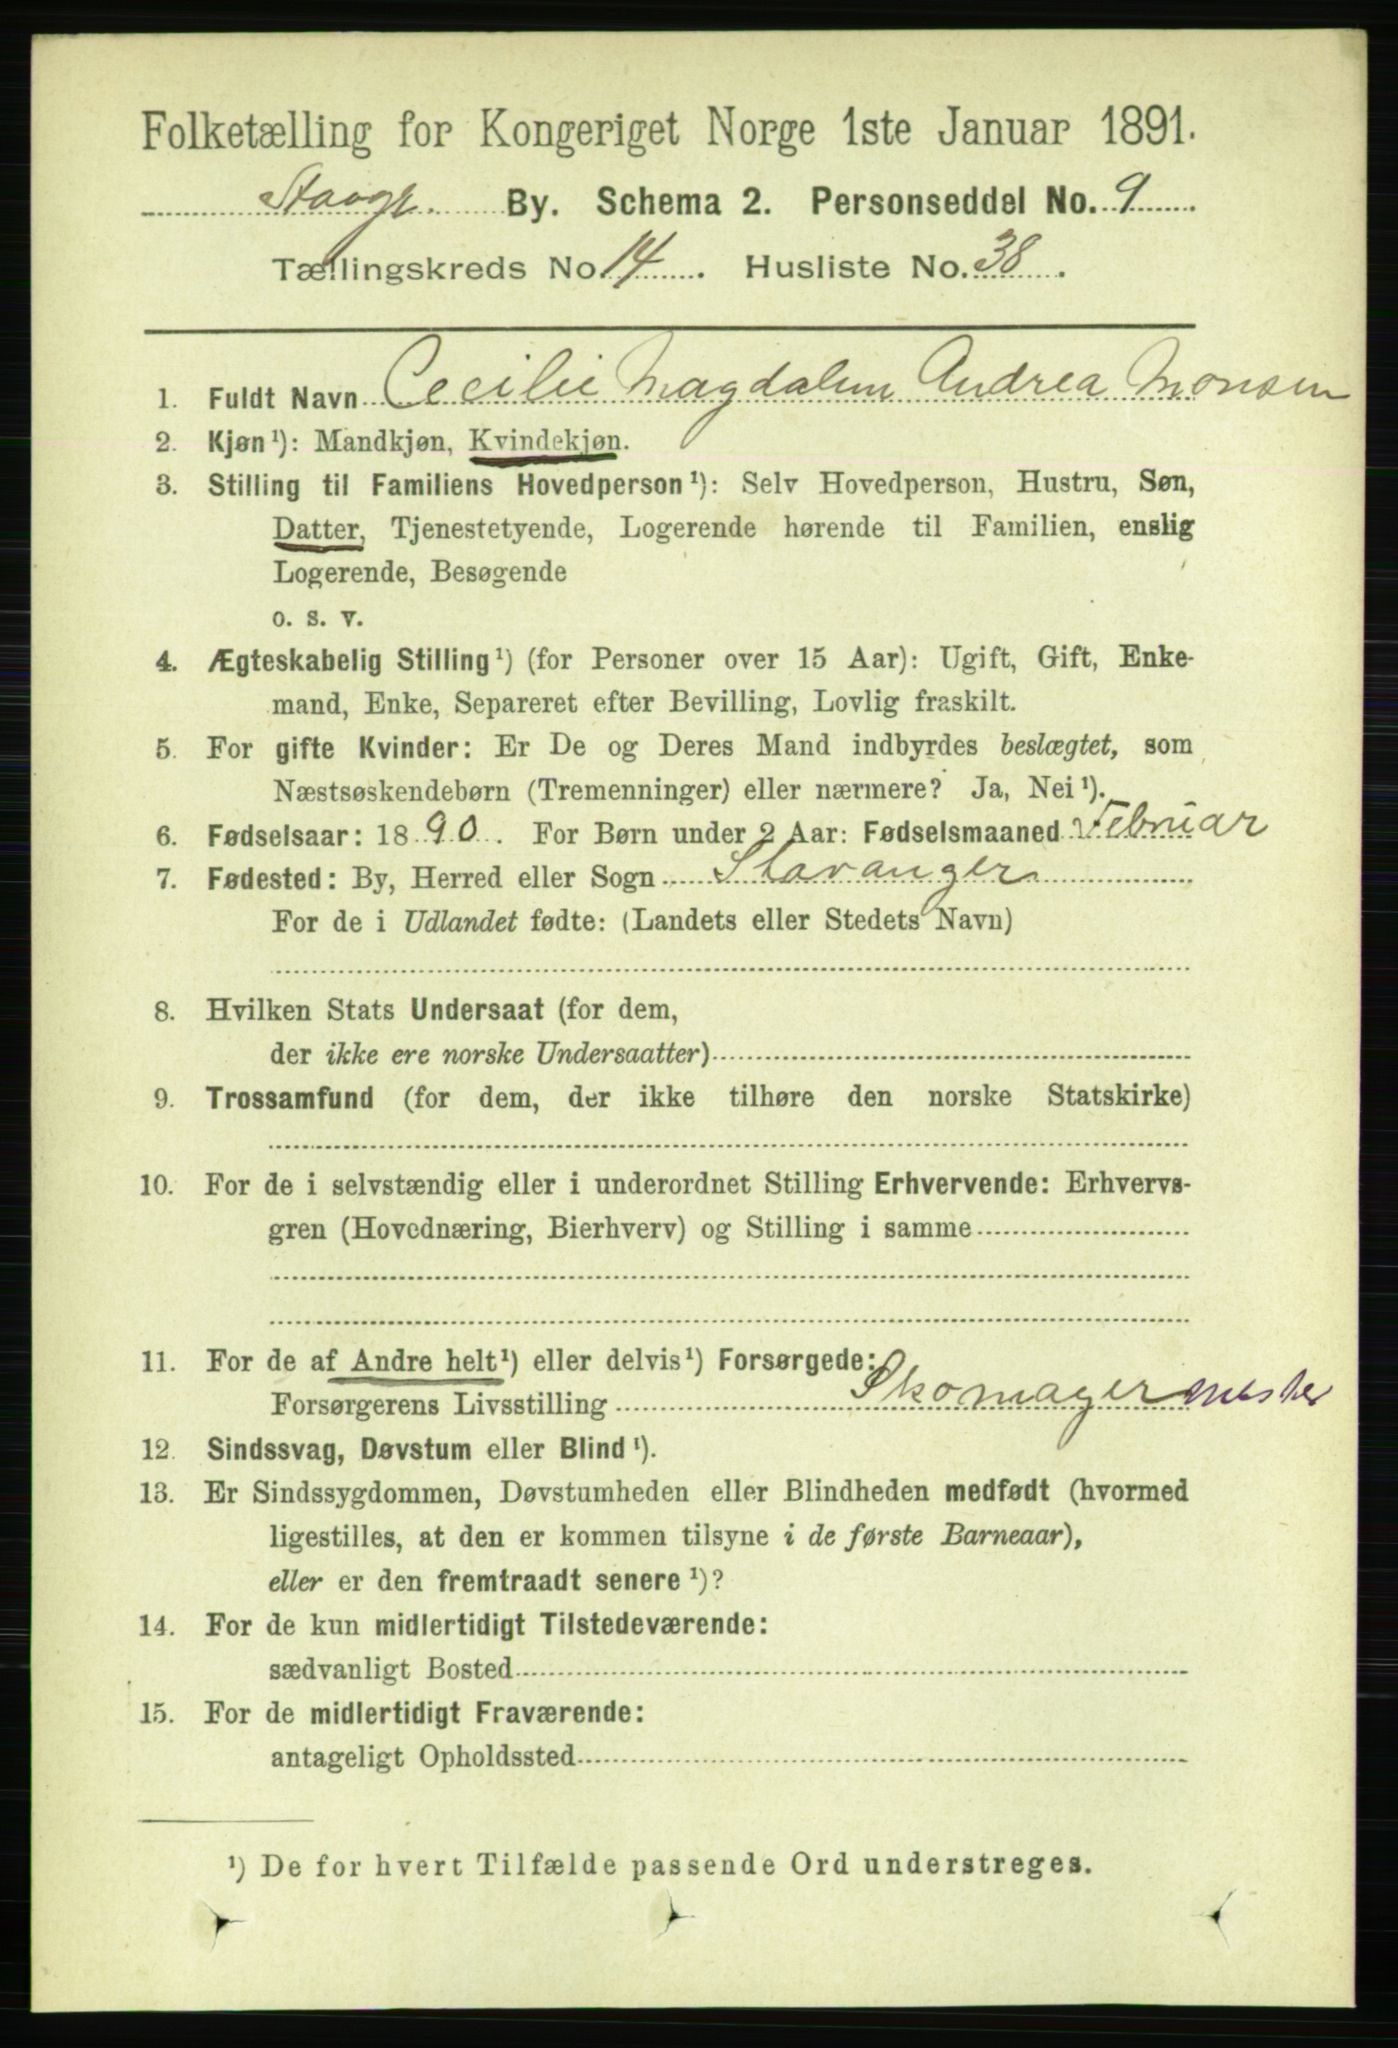 Folketælling for Kongeriget Norge 1ste Januar 1891.
Stavgr. By. Schema 2. Personseddel No. 9
Tællingskreds No. 14. Husliste No. 38.
1. Fuldt Navn Cecilie Magdalene Andrea Monsen
2. Kjøn¹): Mandkjøn, Kvindekjøn.
3. Stilling til Familiens Hovedperson¹): Selv Hovedperson, Hustru, Søn,
Datter, Tjenestetyende, Logerende hørende til Familien, enslig
Logerende, Besøgende
o. s. v.
4. Ægteskabelig Stilling¹) (for Personer over 15 Aar): Ugift, Gift, Enke-
mand, Enke, Separeret efter Bevilling, Lovlig fraskilt.
5. For gifte Kvinder: Er De og Deres Mand indbyrdes beslægtet, som
Næstsøskendebørn (Tremenninger) eller nærmere? Ja, Nei¹).
6. Fødselsaar: 1890. For Børn under 2 Aar: Fødselsmaaned Februar
7. Fødested: By, Herred eller Sogn Stavanger
For de i Udlandet fødte: (Landets eller Stedets Navn)
8. Hvilken Stats Undersaat (for dem,
der ikke ere norske Undersaatter)
9. Trossamfund (for dem, der ikke tilhøre den norske Statskirke)
10. For de i selvstændig eller i underordnet Stilling Erhvervende: Erhvervs-
gren (Hovednæring, Bierhverv) og Stilling i samme
11. For de af Andre helt¹) eller delvis¹) Forsørgede:
Forsørgerens Livsstilling Skomagermester
12. Sindssvag, Døvstum eller Blind¹).
13. Er Sindssygdommen, Døvstumheden eller Blindheden medfødt (hvormed
ligestilles, at den er kommen tilsyne i de første Barneaar),
eller er den fremtraadt senere¹)?
14. For de kun midlertidigt Tilstedeværende:
sædvanligt Bosted
15. For de midlertidigt Fraværende:
antageligt Opholdssted
¹) De for hvert Tilfælde passende Ord understreges.